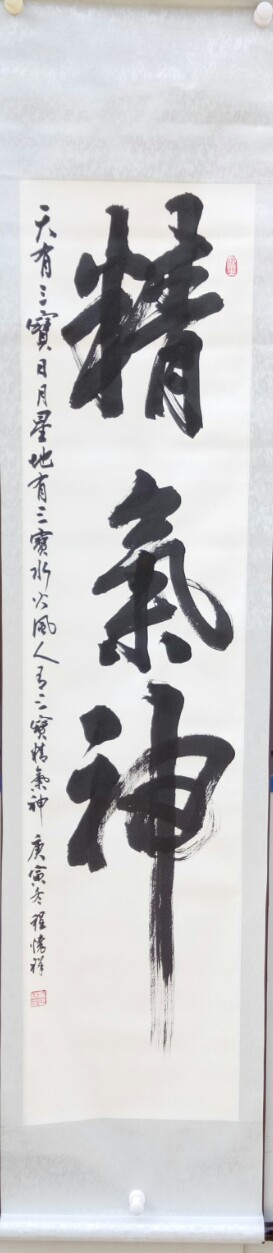 精氣神
天有三寶日月星地有三寶水火風人有三寶精氣神 庚寅冬 程